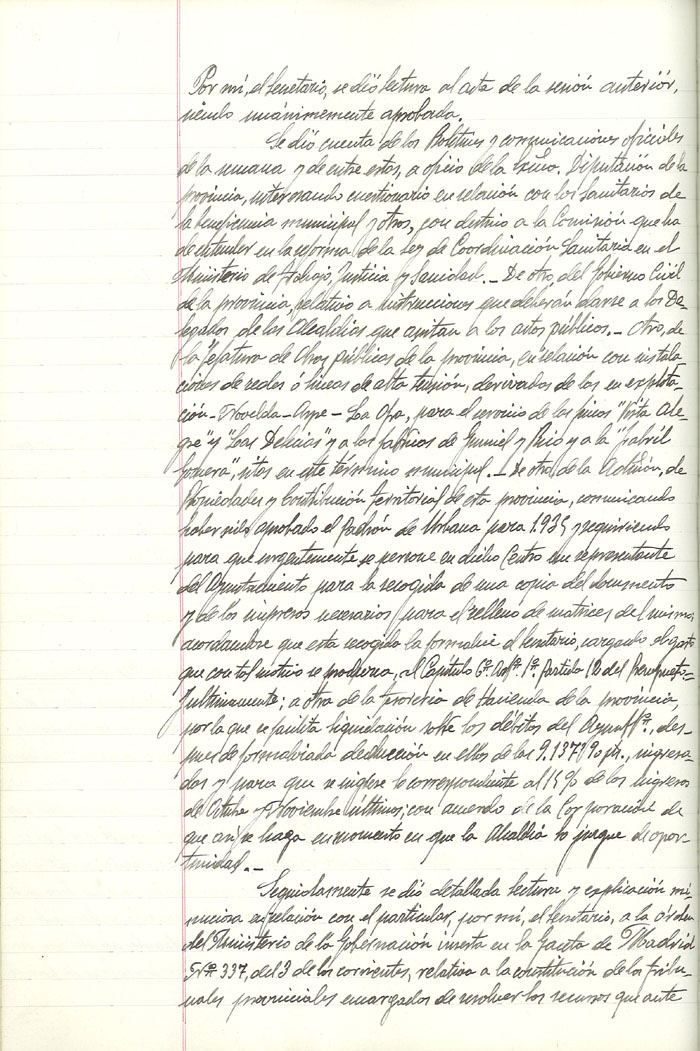 Por mí, el Secretario, se dió lectura al acta de la sesión anterior,
siendo unánimemente aprobada.
Se dió cuenta de los Boletines y comunicaciones oficiales
de la semana y de entre estos, a oficio de la Excma. Diputación de la
provincia, interesando cuestionario en relación con los Sanitarios de
la beneficencia municipal y otros, con destino a la Comisión que ha
de entender en la reforma de la Ley de Coordinación Sanitaria en el
Ministerio de Trabajo, Justicia y Sanidad. - De otro, del Gobierno Civil
de la provincia, relativo a instrucciones que deberán darse a los De-
legados de las Alcaldías que asistan a los actos públicos. - Otro, de
la Jefatura de Obras públicas de la provincia, en relación con instala
ciones de redes o líneas de alta tensión, derivadas de las en explota-
ción - Novelda - Aspe - La Ofra, para el servicio de las fincas "Vista Ale-
gre" y "Las Delicias" y a las fábricas de y Pico y a la "Fabril
", sitos en este término municipal. - De otro, de la Admón. de
Propiedades y Contribución territorial de esta provincia, comunicando
haber sido aprobado el padrón de Urbana para 1.935 y requiriendo
para que urgentemente se persone en dicho Centro un representante
del Ayuntamiento para la recogida de una copia del documento
y de los impresos necesarios para el relleno de matrices del mismo,
acordándose que esta recogida la formalice el Secretario, cargando el gasto
que con tal motivo se produzca, al Capítulo 6º. Artº. 1º. Partida 12 del Presupuesto -
Ultimamente; a otro de la Tesorería de Hacienda de la provincia,
por la que se facilita liquidación sobre los débitos del Ayuntº., des-
pues de formalizada deducción en ellos de las 9.137'90 pts., ingresa-
das y para que se ingrese lo correspondiente al 15% de los ingresos
de Octubre y Noviembre últimos; con acuerdo de la Corporación de
que así se haga en momento en que la Alcaldía lo juzgue de opor-
tunidad. -
Seguidamente se dió detallada lectura y explicación mi-
nuciosa en relación con el particular, por mí, el Secretario, a la órden
del Ministerio de la Gobernación inserta en la Gaceta de Madrid
Nº. 337, del 3 de los corrientes, relativa a la constitución de los tribu-
nales provinciales encargados de resolver los recursos que ante